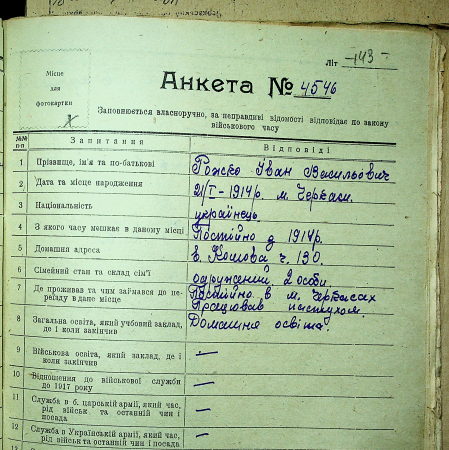 Літ -143-
Місце
для
фотокартки
Анкета № 4546
Заповнюється власноручно, за неправдиві відомості відповідає по закону
військового часу
№№
п-п
Запитання
Відповіді
1 Прізвище, ім'я та по-батькові
Рожско Іван Васильович
2 Дата та місце народження
2/I-1914р. м. Черкаси.
3 Національність
українець
4 З якого часу мешкає в даному місці
Постійно з 1914р.
5 Домашня адреса
в. Комова ч. 130.
6 Сімейний стан та склад сім'ї
одружений, 2 особи.
7 Де проживав та чим займався до переїзду в дане місце
Постійно в м. Черкасах
Працював пастухом.
8 Загальна освіта, який учбовий заклад,
де і коли закінчив
Домашня освіта.
9 Військова освіта, який заклад, де і
коли закінчив
—
10 Відношення до військової служби
до 1917 року
—
11 Служба в б. царській армії, який час,
рід військ та останній чин і
посада
—
12 Служба в Українській армії, який час,
рід військ та останній чин і посада
—